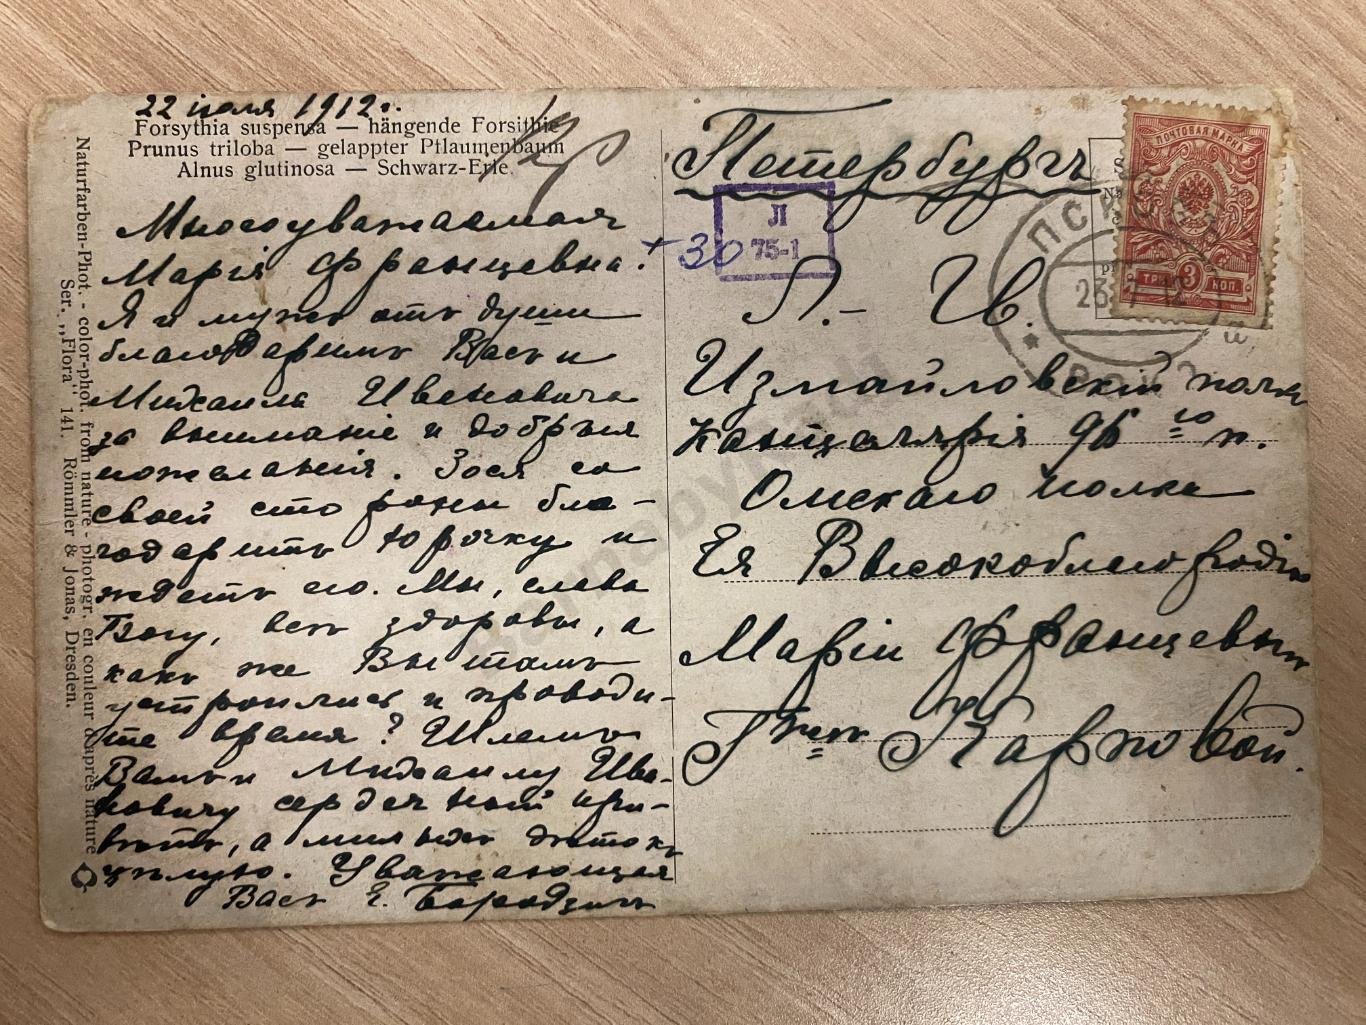 22 іюля 1912 г.
Forsythia suspensa — hängende Forsithie
Prunus triloba — gelappter Pflaumenbaum
Alnus glutinosa — Schwarz-Erle.
Многоуважаемая
Марія Францевна!
Я и мужъ отъ души
благодаримъ Васъ и
Михаила Ивановича
за вниманіе и добрыя
пожеланія. Зося со
своей стороны бла-
годаритъ Юрочку и
ждетъ его. Мы, слава
Богу, всѣ здоровы, а
какъ же Вы тамъ
устроились и проводи-
те время? Шлемъ
Вамъ и Михаилу Ива-
новичу сердечный при-
вѣтъ, а милыхъ дѣтокъ
цѣлую. Уважающая
Васъ Е. Бородзичъ
Naturfarben-Phot. - color-phot. from nature - photogr. en couleur d'après nature
Ser. „Flora" 141. Römmler & Jonas, Dresden.
Петербургъ
Л
75-1
+ 30
ПОЧТОВАЯ МАРКА
ТРИ 3 КОП.
ПСКОВЪ
23 7 12
Измайловскій полкъ
Канцелярія 96го п.
Омскаго полка
Ея Высокоблагородію
Маріи Францевнѣ
Гжѣ Карповой.